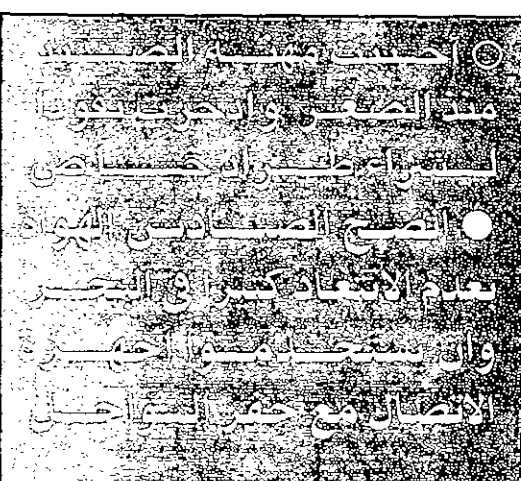 ○ احببت مهنة الصيد
منذ الصغر وادخرت نقودا
لشراء طراد خاص
● انصح الصيادين الهواة
بعدم الابتعاد كثيرا في البحر
وان يستخدموا اجهزة
الاتصال مع خفر السواحل